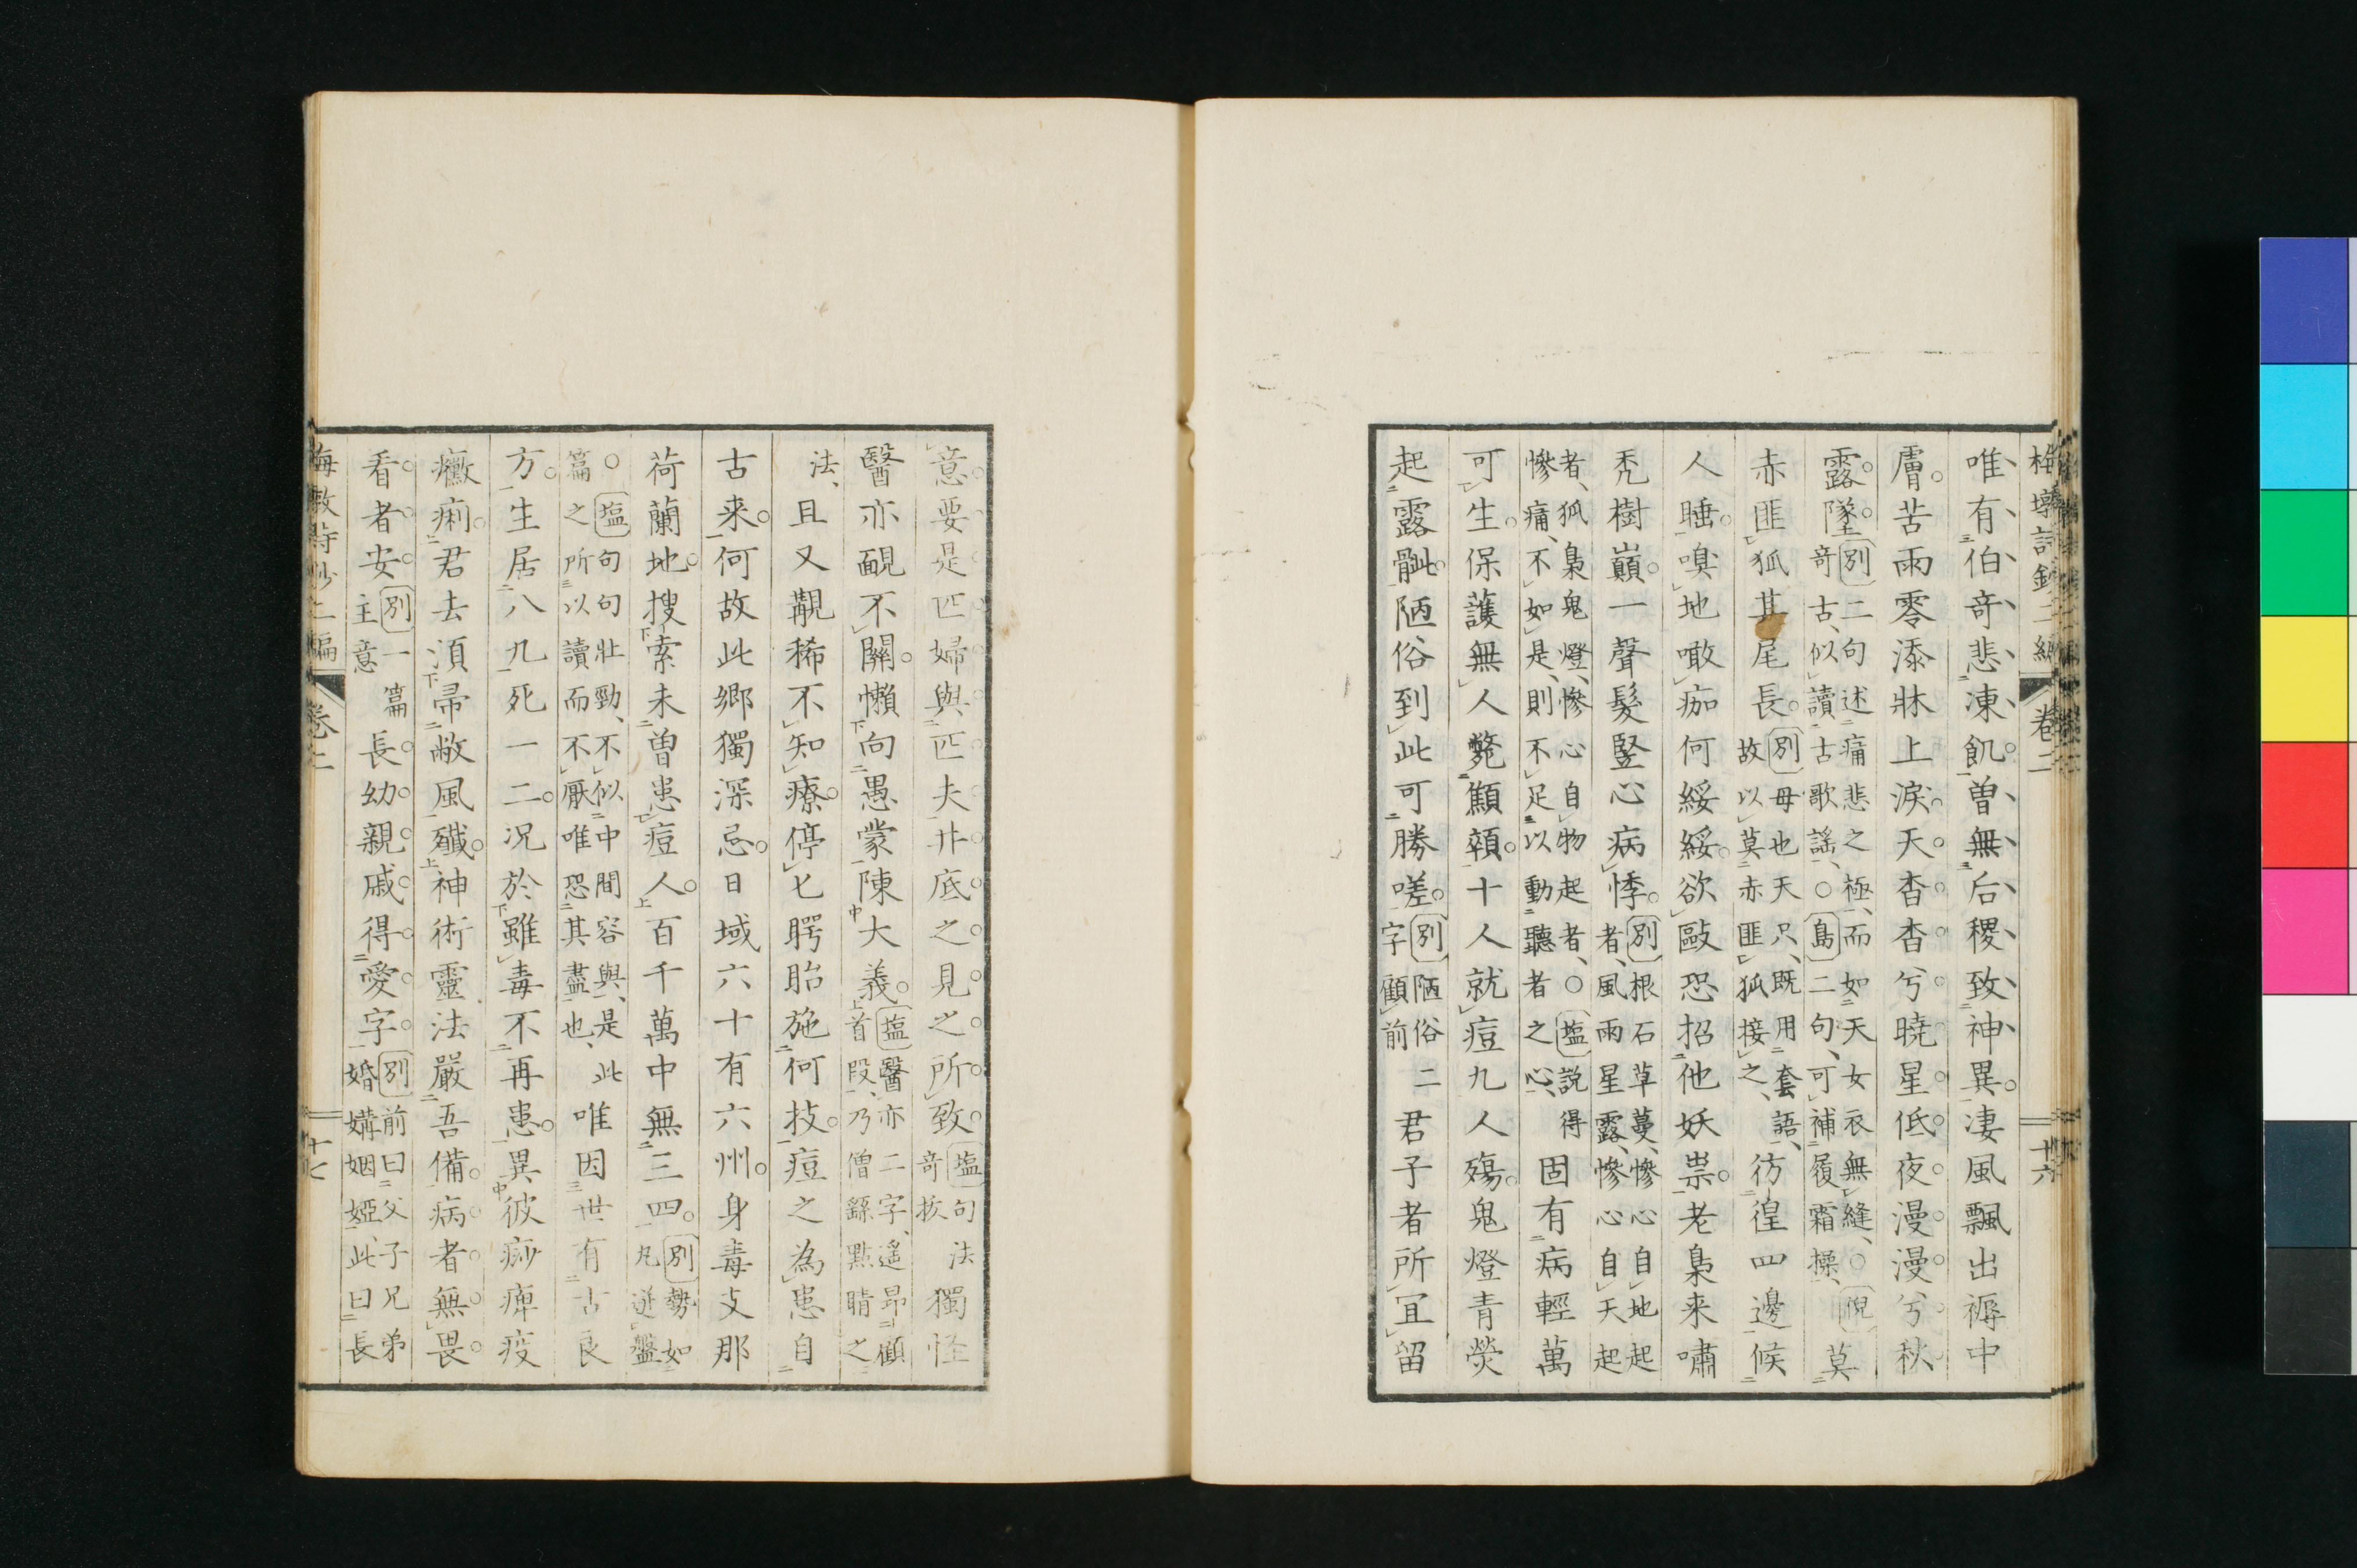 梅墩詩鈔二編 卷二 十六
唯有伯奇悲凍飢曾無后稷致神異凄風飄出褥中
膚苦雨零添牀上淚天杳杳兮曉星低夜漫漫兮秋
露墜 別二句述痛悲之極而如天女衣無縫○倪奇古似讀古歌謠○島二句可補履霜操 莫
赤匪狐其尾長 別毋也天只既用套語故以莫赤匪狐接之 彷徨四邊候
人睡嗅地噉痂何綏綏欲毆恐招他妖祟老梟来嘯
禿樹巓一聲髮豎心病悸 別根石草蔓慘心自地起者風雨星露慘心自天起
者狐梟鬼燈慘心自物起者○塩説得慘痛不如是則不足以動聽者之心 固有病輕萬
可生保護無人斃顦顇十人就痘九人殤鬼燈青熒
起露骴陋俗到此可勝嗟 別陋俗二字顧前 君子者所宜留
意要是匹婦與匹夫井底之見之所致 塩句法奇拔 獨怪
醫亦靦不關懶向愚蒙陳大義 塩醫亦二字遥昂顧首段乃僧繇點睛之
法 且又覯稀不知療停匕腭眙施何技痘之為患自
古来何故此鄉獨深忌日域六十有六州身毒支那
荷蘭地搜索未曽患痘人百千萬中無三四 別勢如丸迸盤
○塩句句壯勁不似中間容與是此篇之所以讀而不厭唯恐其盡也 唯因世有古良
方生居八九死一二况於雖毒不再患異彼痧痺疫
癥痢君去須帚敝風殲神術靈法嚴吾備病者無畏
看者安 別一篇主意 長幼親戚得愛字 別前曰父子兄弟婚媾姻婭此曰長
梅墩詩鈔二編 卷二 十七